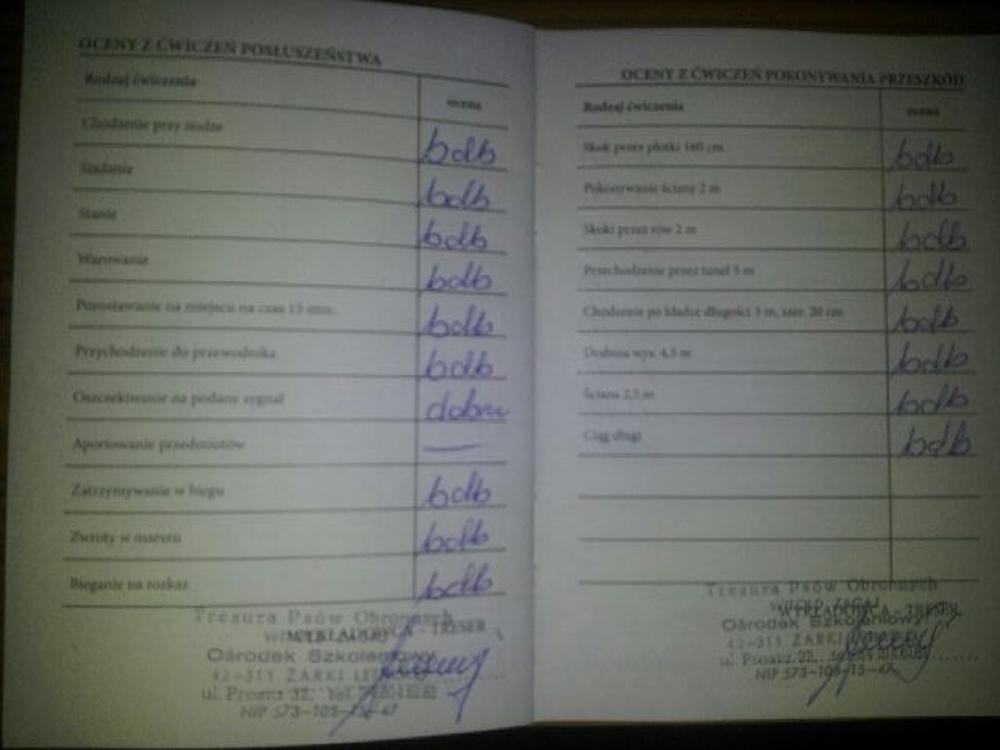 OCENY Z ĆWICZEŃ POSŁUSZEŃSTWA
Rodzaj ćwiczenia ocena
Chodzenie przy nodze bdb
Siadanie bdb
Stanie bdb
Warowanie bdb
Pozostawanie na miejscu na czas 15 min. bdb
Przychodzenie do przewodnika bdb
Oszczekiwanie na podany sygnał dobre
Aportowanie przedmiotów —
Zatrzymywanie w biegu bdb
Zwroty w marszu bdb
Bieganie na rozkaz bdb
Tresura Psów Obronnych
WYKŁADOWCA - TRESER
Ośrodek Szkoleniowy
42-311 ŻARKI
ul. Prosta 32, tel.
NIP 573-105-15-47
OCENY Z ĆWICZEŃ POKONYWANIA PRZESZKÓD
Rodzaj ćwiczenia ocena
Skok przez płotki 160 cm bdb
Pokonywanie ściany 2 m bdb
Skoki przez rów 2 m bdb
Przechodzenie przez tunel 5 m bdb
Chodzenie po kładce długości 3 m, szer. 20 cm bdb
Drabina wys. 4,5 m bdb
Ściana 2,5 m bdb
Ciąg długi bdb
Tresura Psów Obronnych
WYKŁADOWCA - TRESER
Ośrodek Szkoleniowy
42-311 ŻARKI
ul. Prosta 32, tel.
NIP 573-105-15-47